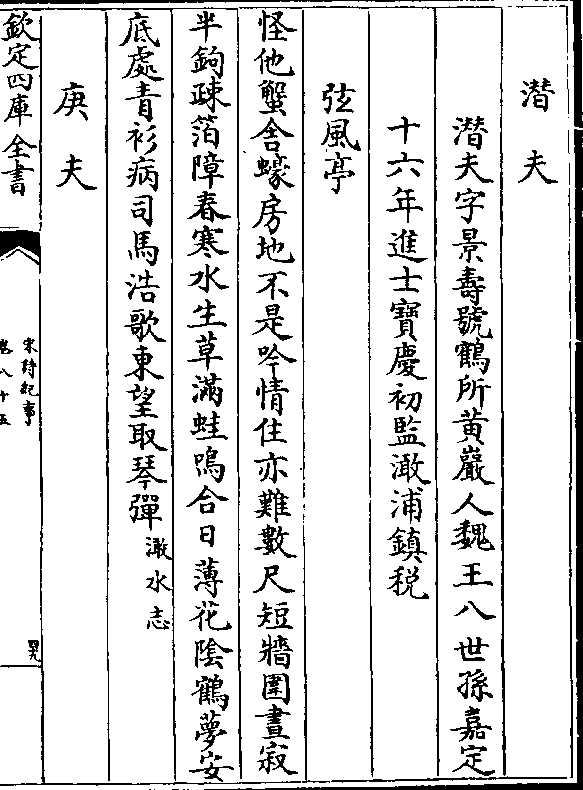 潛夫
潛夫字景壽號鶴所黃巖人魏王八世孫嘉定
十六年進士寶慶初監澉浦鎮税
弦風亭
怪他蟹舍蠔房地不是吟情住亦難數尺短牆圍晝寂
半鉤疎箔障春寒水生草滿蛙鳴合日薄花陰鶴夢安
底處青衫病司馬浩歌東望取琴彈
澉水志
庚夫
欽定四庫全書
宋詩紀事
卷八十五